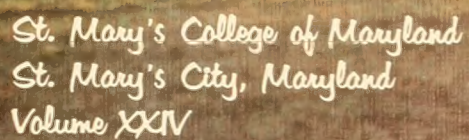 St. Mary's College of Maryland
St. Mary's City, Maryland
Volume XXIV